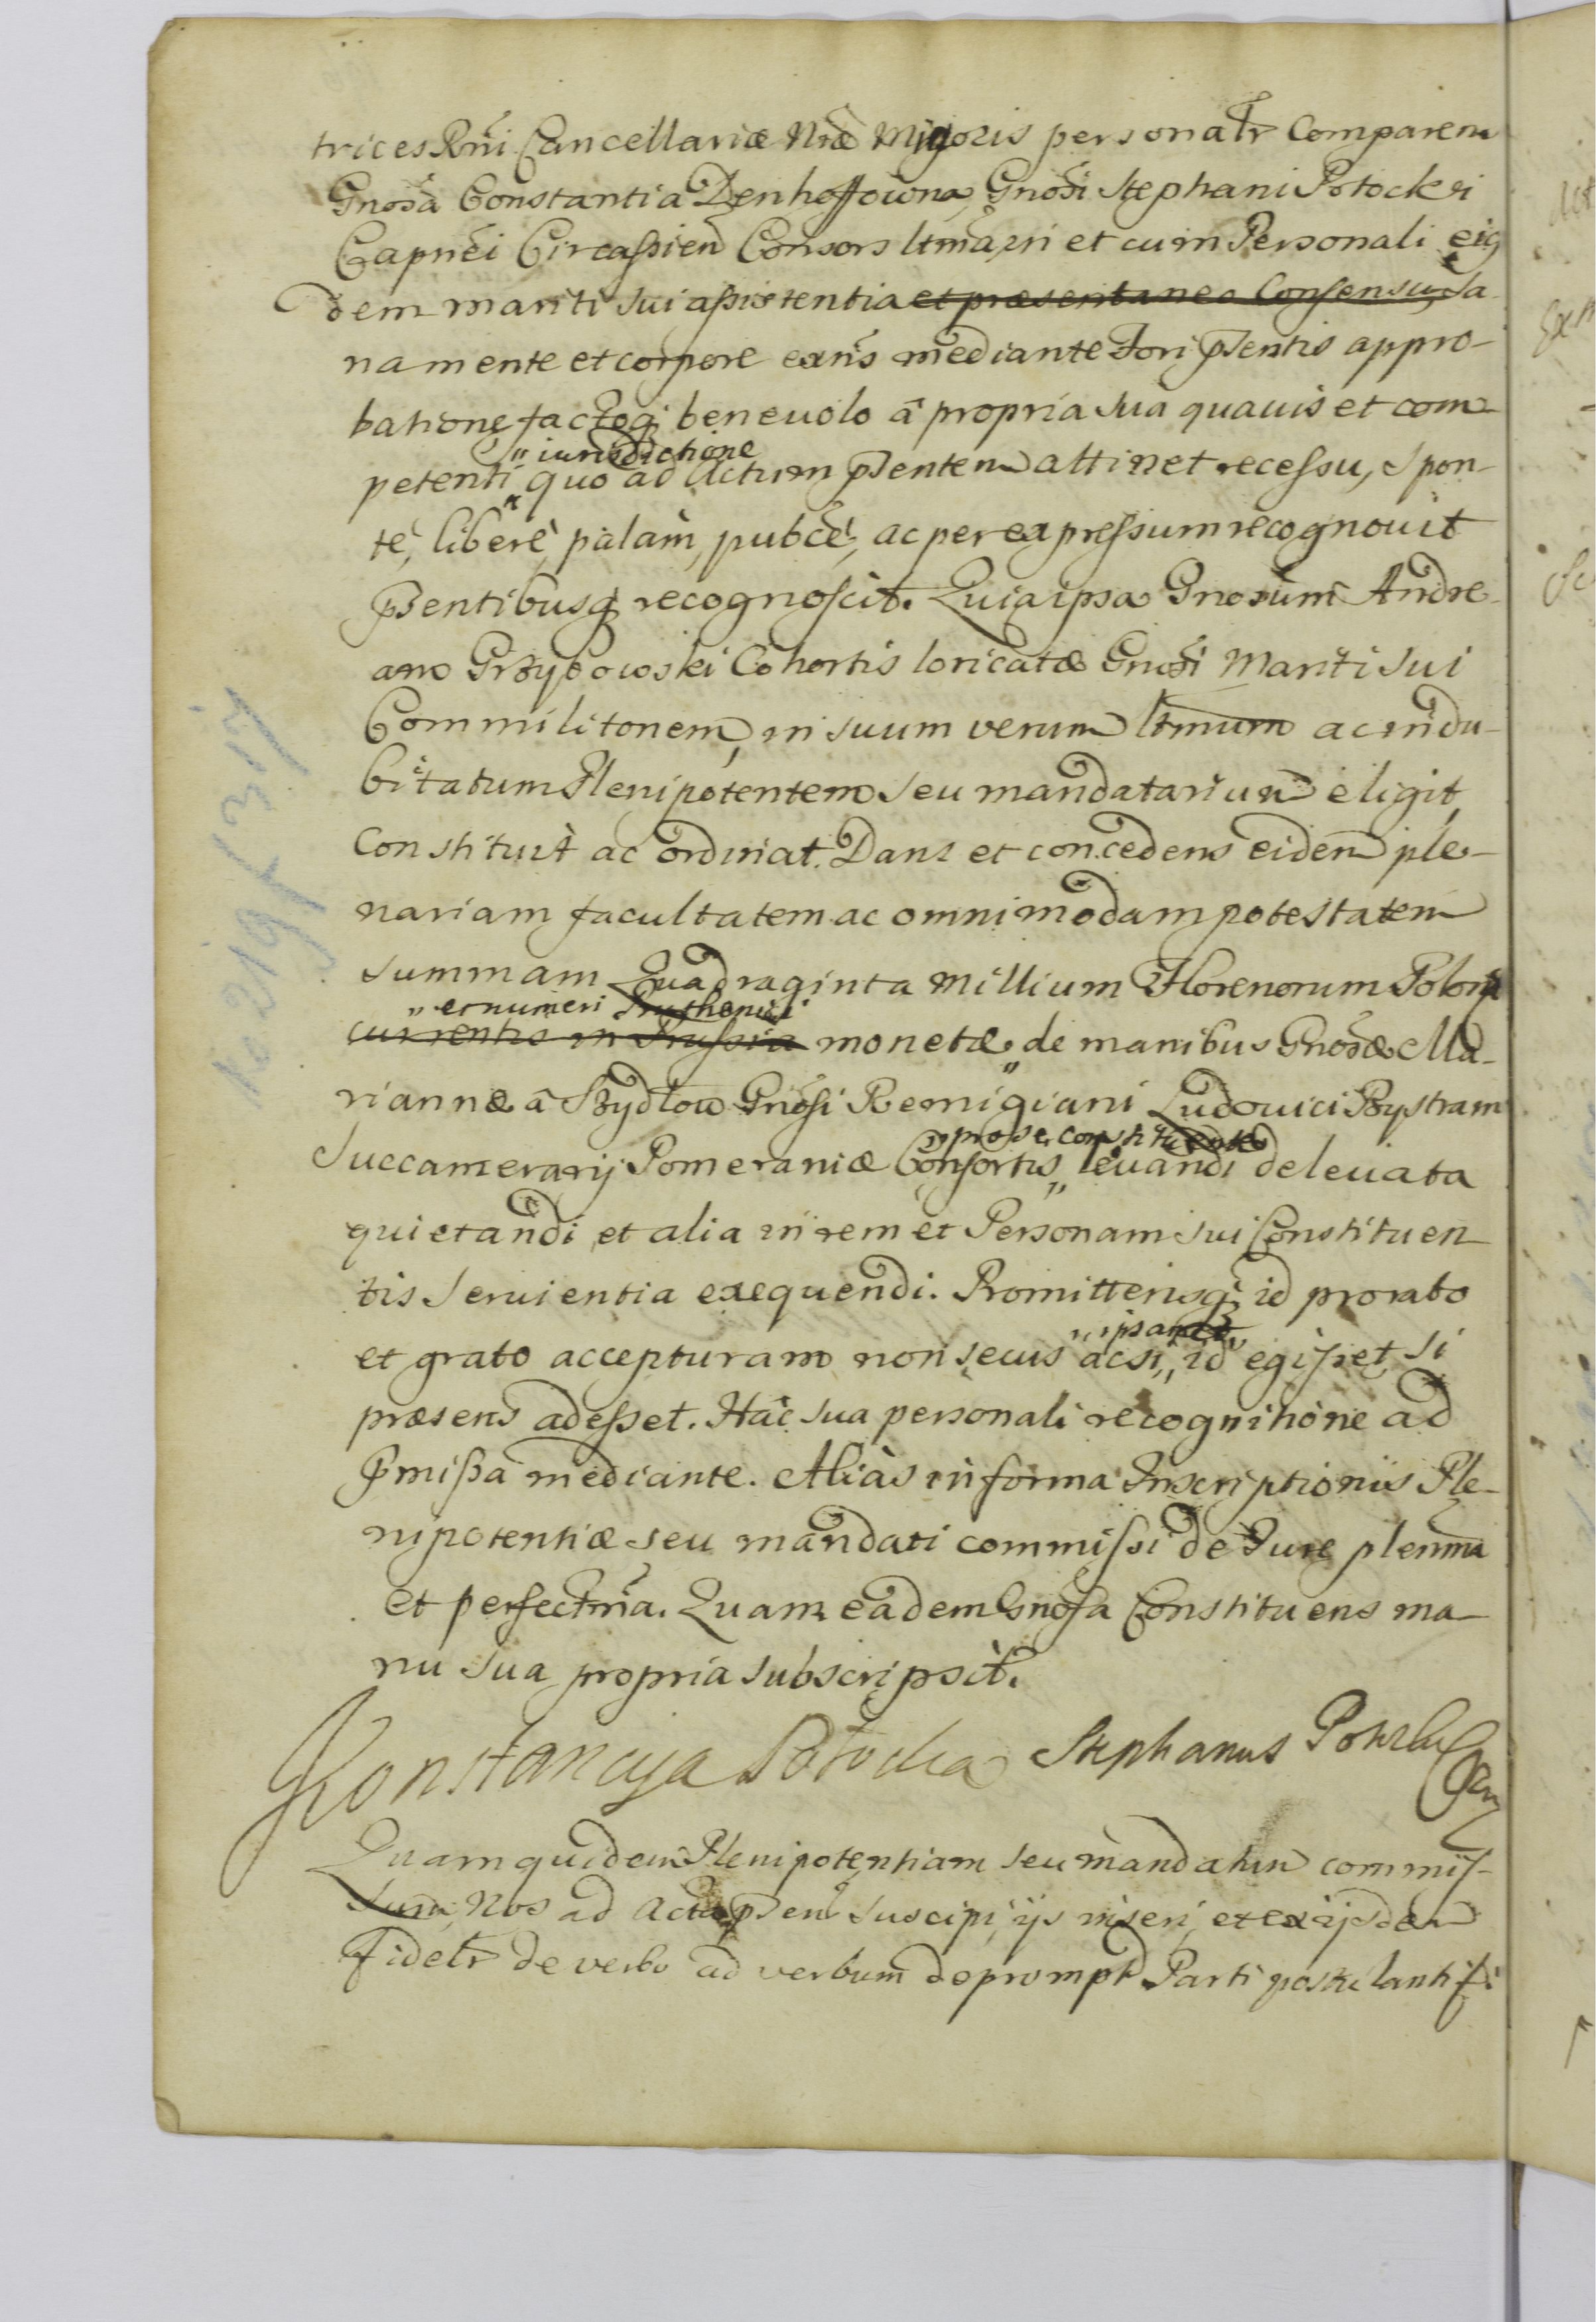 trices Rni Cancellariæ Nræ Minoris personalr Comparens
Gnosa Constantia Denhoffowna, Gnosi Stephani Potocki
Capnei Circassien Consors ltma, ni et cum Personali eius
dem mariti sui assistentia et præsentaneo Consensu, Sa
na mente et corpore exns mediante Fori pñtentis appro-
batione factoq; benevolo â propria sua quavis et com-
„iurisdictione
petenti „ quo ad Actum psentem attinet recessu, spon-
tè, liberè, palàm, pubcè, ac per expressum recognovit
psentibusq; recognoscit. Quia ipsa Gnosum Andre-
am Grzybowski Cohortis loricatæ Gnosi Mariti sui
Commilitonem, in suum verum ltmum ac indu-
bitatum Plenipotentem seu mandatarium eligit,
Constituit ac ordinat. Dans et concedens eidem ple-
nariam facultatem ac omnimodam potestatem
summam Quadraginta Millium Florenorum Polon
„et numeri Pruthenici
currentis in Prussia monetæ „ de manibus Gnosæ Ma-
riannæ â Szydłow Gnosi Remigiani Ludovici Bystram
„pro se constituente
Succamerarij Pomeraniæ Consortis „ levandi de levata
quietandi, et alia in rem et Personam sui Constituen
tis servientia exequendi. Promittensq; id pro rato
„ipsamet„
et grato accepturam non secus acsi „ id egisset, si
præsens adesset. Hac sua personali recognitione ad
pmissa mediante. Aliàs in forma Inscriptionis Ple-
nipotentiæ seu mandati commissi de Iure plenma
et perfectma. Quam eadem Gnosa Constituens ma-
nu sua propria subscripsit.
Konstancyja Potocka Stephanus Potocki
Quamquidem Plenipotentiam seu mandatum commis-
sum, Nos ad Acta psen suscipi, ijs inseri, et ex ijsdem
fidelr de verbo ad verbum depromp Parti postulanti